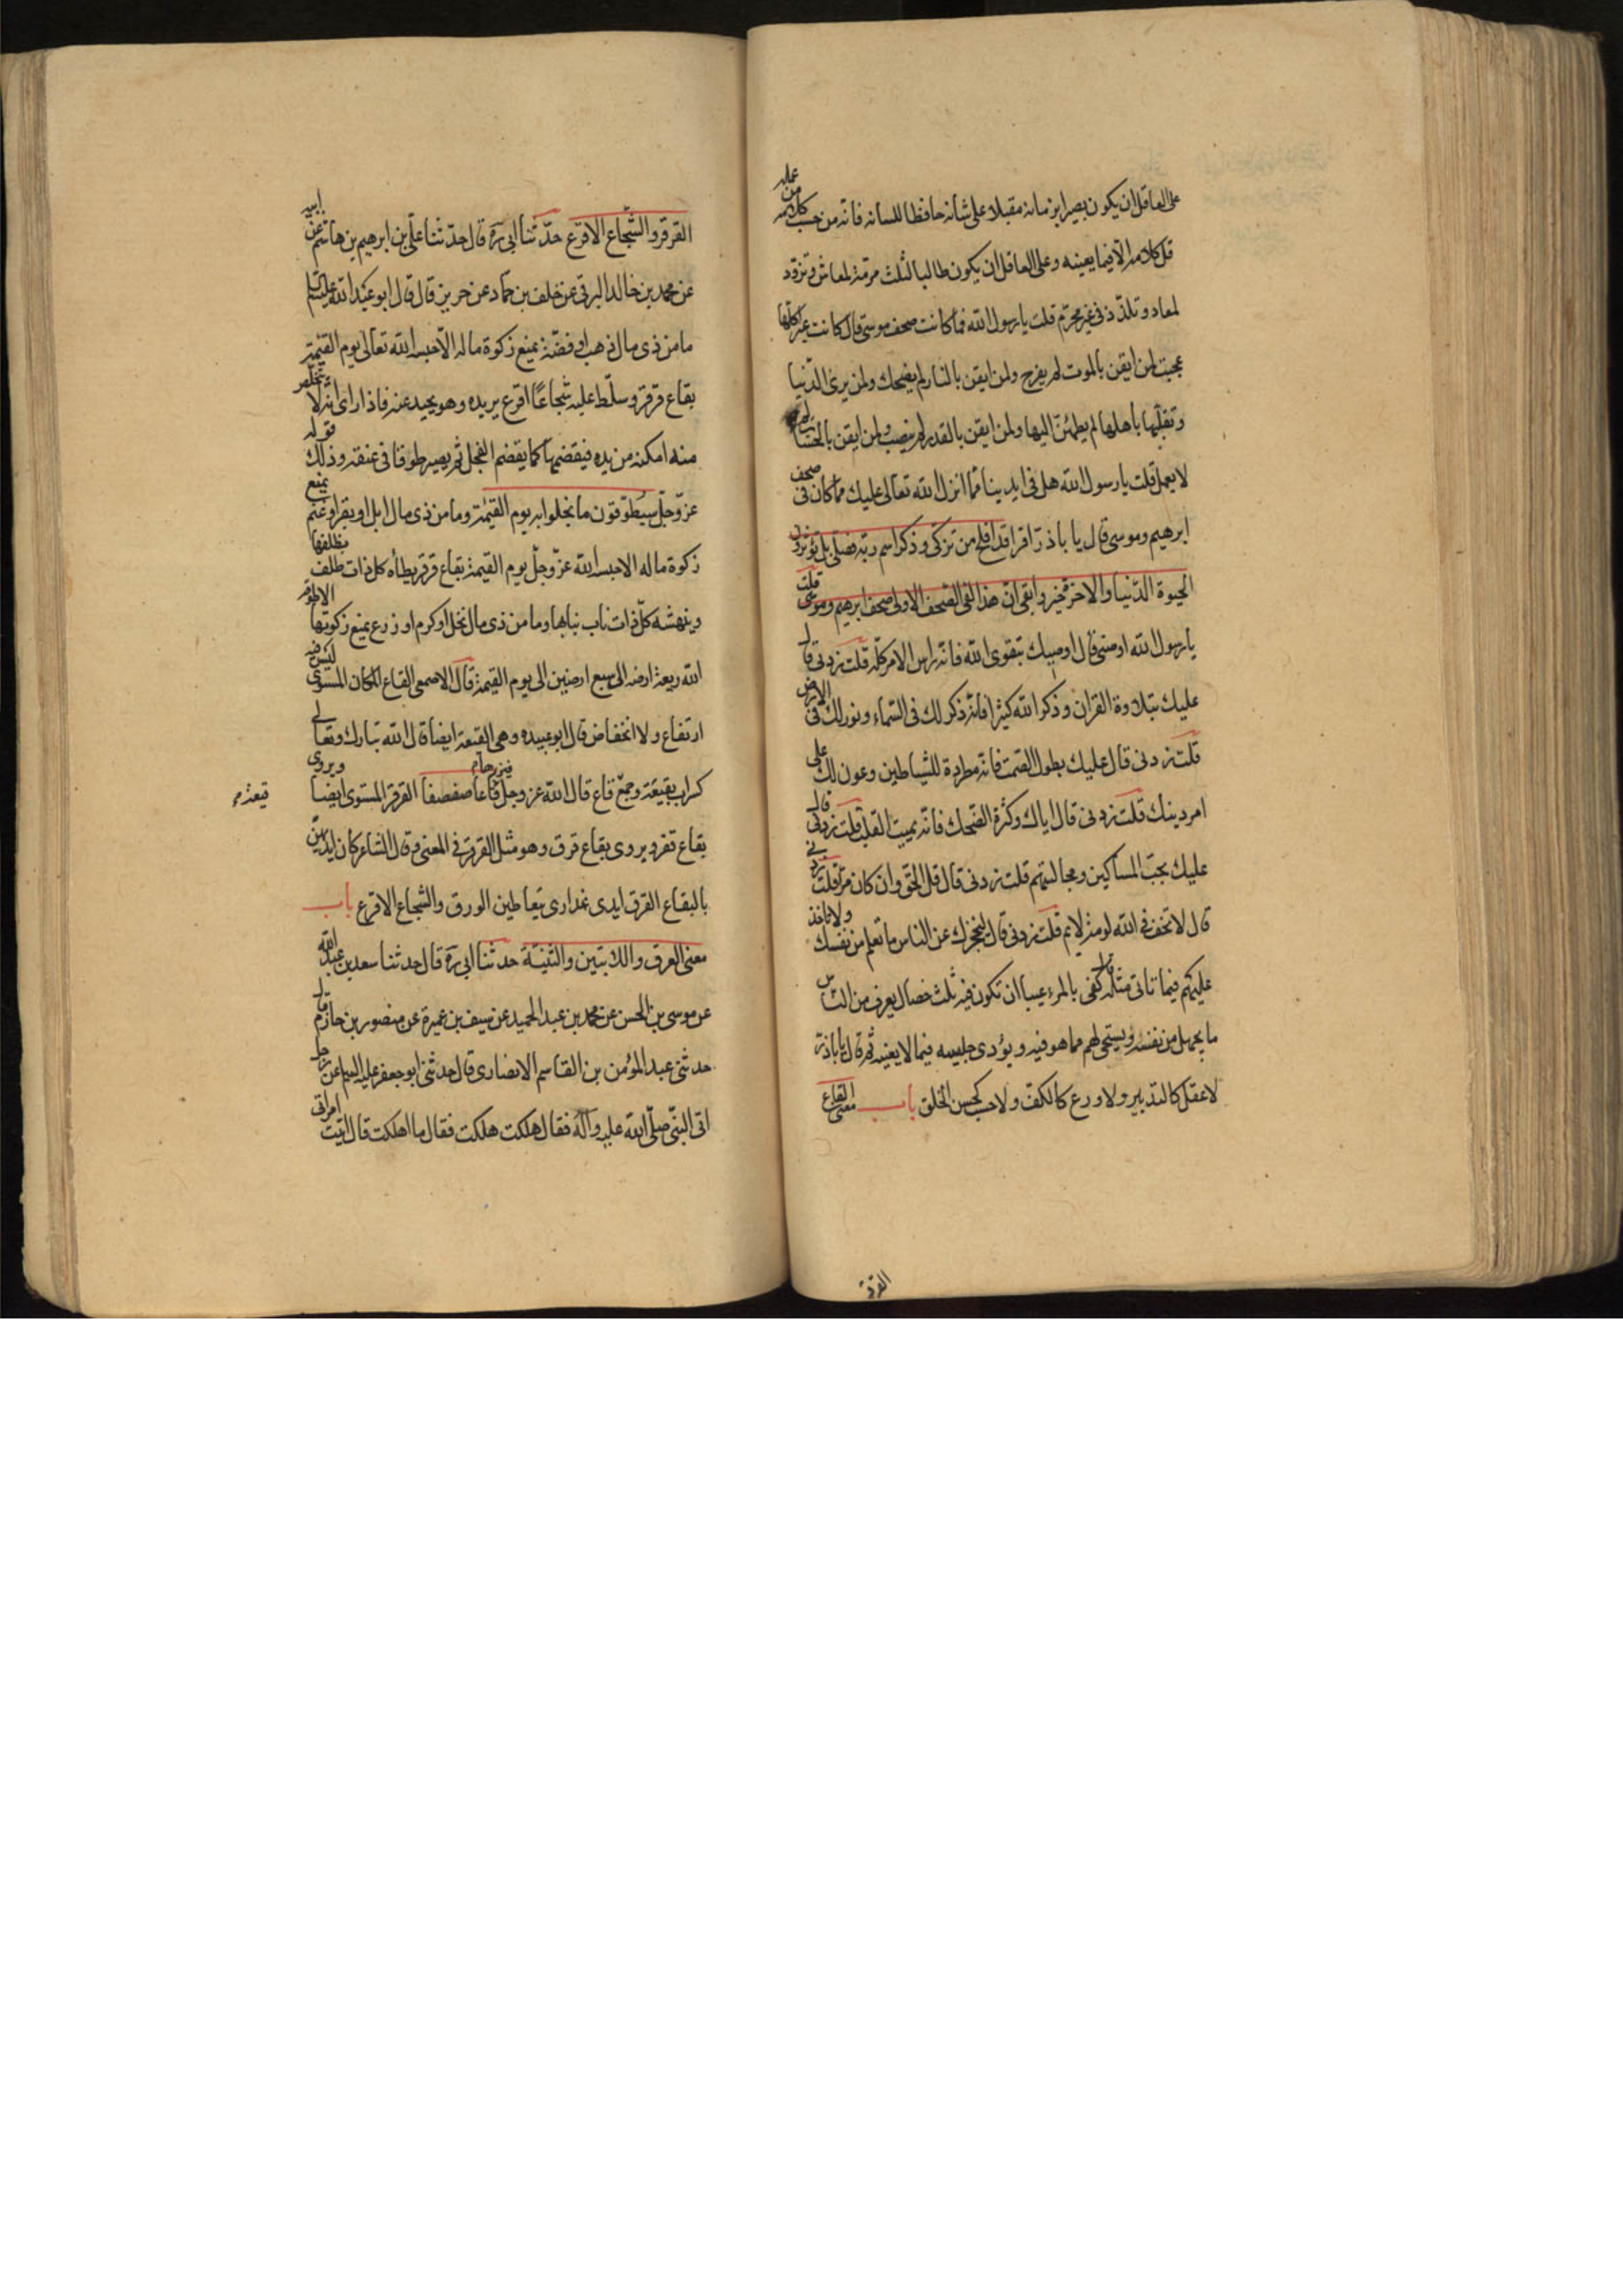 على العاقل ان يكون بصيرا بزمانه مقبلا على شانه حافظا للسانه فانه من حسب كلامه من عمله
قل كلامه الا فيما يعينه وعلى العاقل ان يكون طالبا لثلث مرمة لمعاش وتزود
لمعاد وتلذذ فى غير محرّم قلت يا رسول الله فما كانت صحف موسى قال كانت عبرا كلها
عجبت لمن ايقن بالموت لم يفرح ولمن ايقن بالنار لم يضحك ولمن يرى الدّنيا
وتقلّبها باهلها لم يطمئنّ اليها ولمن ايقن بالقدر لم ينصب ولمن ايقن بالحساب لم
لا يعمل قلت يا رسول الله هل فى ايدينا ممّا انزل الله تعالى عليك مما كان فى صحف
ابرهيم وموسى قال يا باذرّ اقرا قد افلح من تزكّى وذكر اسم ربّه فصلّى بل تؤثرون
الحيوة الدّنيا والاخرة خير وابقى ان هذا لفى الصّحف الاولى صحف ابرهيم وموسى قلت
يا رسول الله اوصنى قال اوصيك بتقوى الله فانّه راس الامر كلّه قلت زدنى قال
عليك بتلاوة القران وذكر الله كثيرا فانّه ذكر لك فى السّماء ونور لك فى الارض
قلت زدنى قال عليك بطول الصّمت فانّه مطردة للشياطين وعون لك على
امر دينك قلت زدنى قال اياك وكثرة الضّحك فانّه يميت القلب قلت زدنى قال
عليك بحبّ المساكين ومجالستهم قلت زدنى قال قل الحق وان كان مرّا قلت زدنى
قال لا تخف فى الله لومة لائم قلت زدنى قال ليحجزك عن الناس ما تعلم من نفسك ولا تاخذ
عليهم فيما تاتى مثله قال كفى بالمرء عيبا ان تكون فيه ثلث خصال يعرف من النّاس
ما يجهل من نفسه ويستحى لهم مما هو فيه ويؤذى جليسه فيما لا يعنيه ثم قال يا باذرّ
لا عقل كالتدبير ولا ورع كالكفّ ولا حسب كحسن الخلق باب معنى القاع
القرقر
القرقر والشّجاع الاقرع حدّثنا ابى ره قال حدّثنا علىّ بن ابرهيم بن هاشم عن ابيه
عن محمد بن خالد البرقى عن خلف بن حماد عن حريز قال قال ابو عبد الله عليه السلم
ما من ذى مال ذهب او فضّة يمنع زكوة ماله الّا حبسه الله تعالى يوم القيمة
بقاع قرقر وسلّط عليه شجاعًا اقرع يريده وهو يحيد عنه فاذا راى انّه لا يتخلّص
منه امكنه من يده فيقضمها كما يقضم الفجل ثم يصير طوقا فى عنقه وذلك قوله
عزّ وجلّ سيطوّقون ما بخلوا به يوم القيمة وما من ذى مال ابل او بقر او غنم يمنع
زكوة ماله الا حبسه الله عزّ وجلّ يوم القيمة بقاع قرقر يطأه كل ذات ظلف بظلفها
وينهشه كلّ ذات ناب بنابها وما من ذى مال نخل او كرم او زرع يمنع زكوتها الا طوّقه
الله ريعة ارضه الى سبع ارضين الى يوم القيمة قال الاصمعى القاع المكان المستوى ليس فيه
ارتفاع ولا انخفاض قال ابو عبيده وهى القيعة ايضا قال الله تبارك وتعالى
كسراب بقيعة وجمع قاع قال الله عز وجل فيذرها قاعا صفصفا القرقر المستوى ايضا ويروى
قيعة م
بقاع قفر ويروى بقاع قرق وهو مثل القرقر فى المعنى قال الشاعر كان ايديهنّ
بالبقاع القرق ايدى عذارى يتعاطين الورق والشجاع الاقرع باب
معنى العرق واللابتين والثنيّة حدثنا ابى ره قال حدثنا سعد بن عبد الله
عن موسى بن الحسن عن محمد بن عبد الحميد عن سيف بن عميرة عن منصور بن حازم قال
حدثنى عبد المؤمن بن القاسم الانصارى قال حدثنى ابو جعفر عليه السلم ان رجلا
اتى النّبىّ صلّى الله عليه وآله فقال هلكت هلكت فقال ما اهلكت قال اتيت امراتى